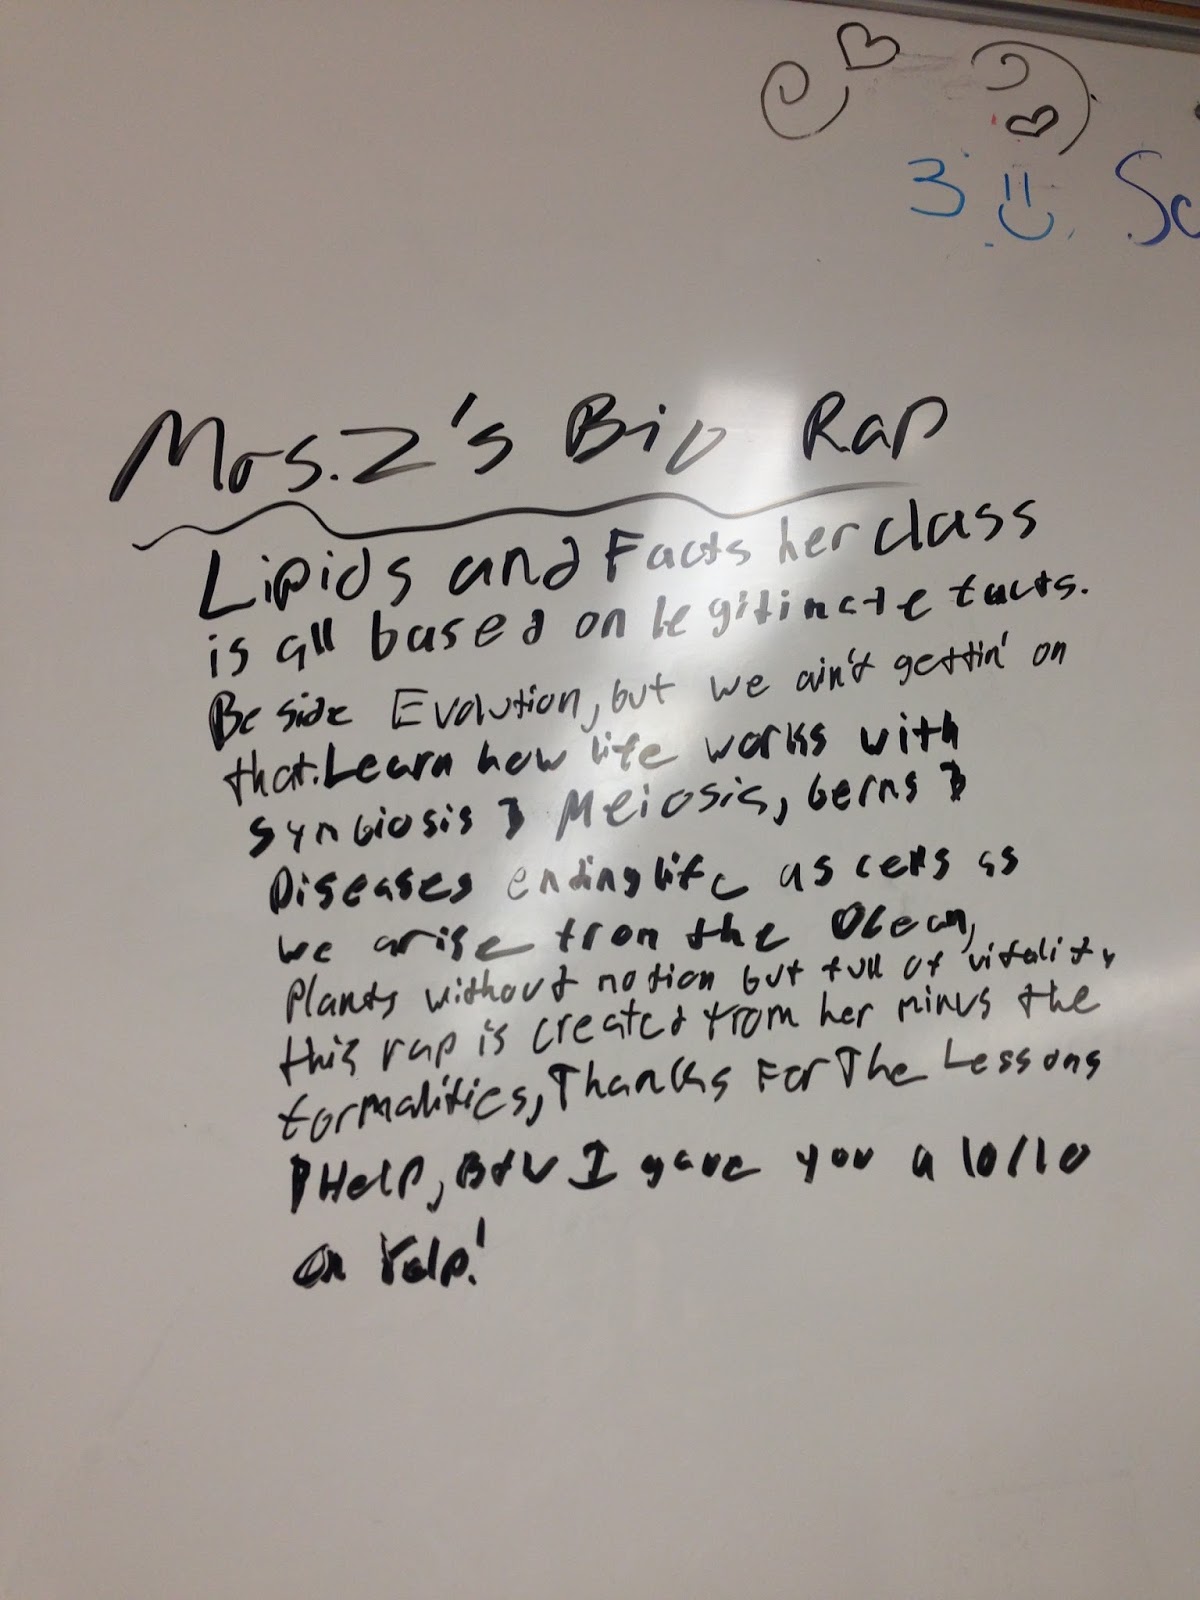 3 Sc
Mrs. Z's Bio Rap
Lipids and Facts her class
is all based on legitimate facts.
Beside Evolution, but we ain't gettin' on
that. Learn how life works with
Symbiosis & Meiosis, Germs &
Diseases ending life as cells as
we arise from the Ocean,
Plants without notion but full of vitality
this rap is created from her minus the
formalities, Thanks For The Lessons
& Help, Btw I gave you a 10/10
on Yelp!